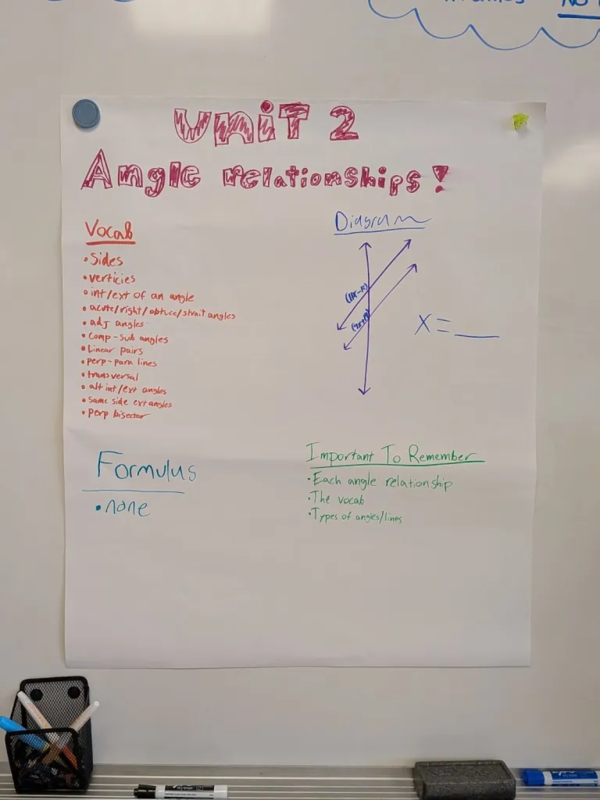 UNiT 2
Angle relationships!
Vocab
•Sides
•verticies
•int/ext of an angle
•acute/right/obtuce/strait angles
•adj angles
•comp-sub angles
•Linear pairs
•perp-para lines
•transversal
•alt int/ext angles
•same side ext angles
•perp bisector
Diagram
X=___
Formulus
•none
Important To Remember
•Each angle relationship
•The vocab
•Types of angles/lines